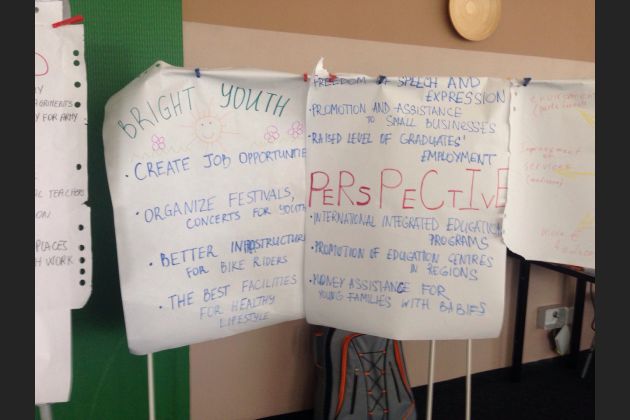 BRIGHT YOUTH
• CREATE JOB OPPORTUNITIE
• ORGANIZE FESTIVALS,
CONCERTS FOR YOUTH
• BETTER
FOR BIKE RIDERS
• THE BEST FACILITIES
FOR HEALTHY
LIFESTYLE
FREEDOM OF SPEECH AND
EXPRESSION
• PROMOTION AND ASSISTANCE
TO SMALL BUSINESSES
• RAISED LEVEL OF GRADUATES'
EMPLOYMENT
PERSPECTIVE
• INTERNATIONAL INTEGRATED EDUCATION
PROGRAMS
• PROMOTION OF EDUCATION CENTRES
IN REGIONS
• MONEY ASSISTANCE FOR
YOUNG FAMILIES WITH BABIES
Y FOR ARMY
AL TEACHERS
ION
PLACES
H WORK
services